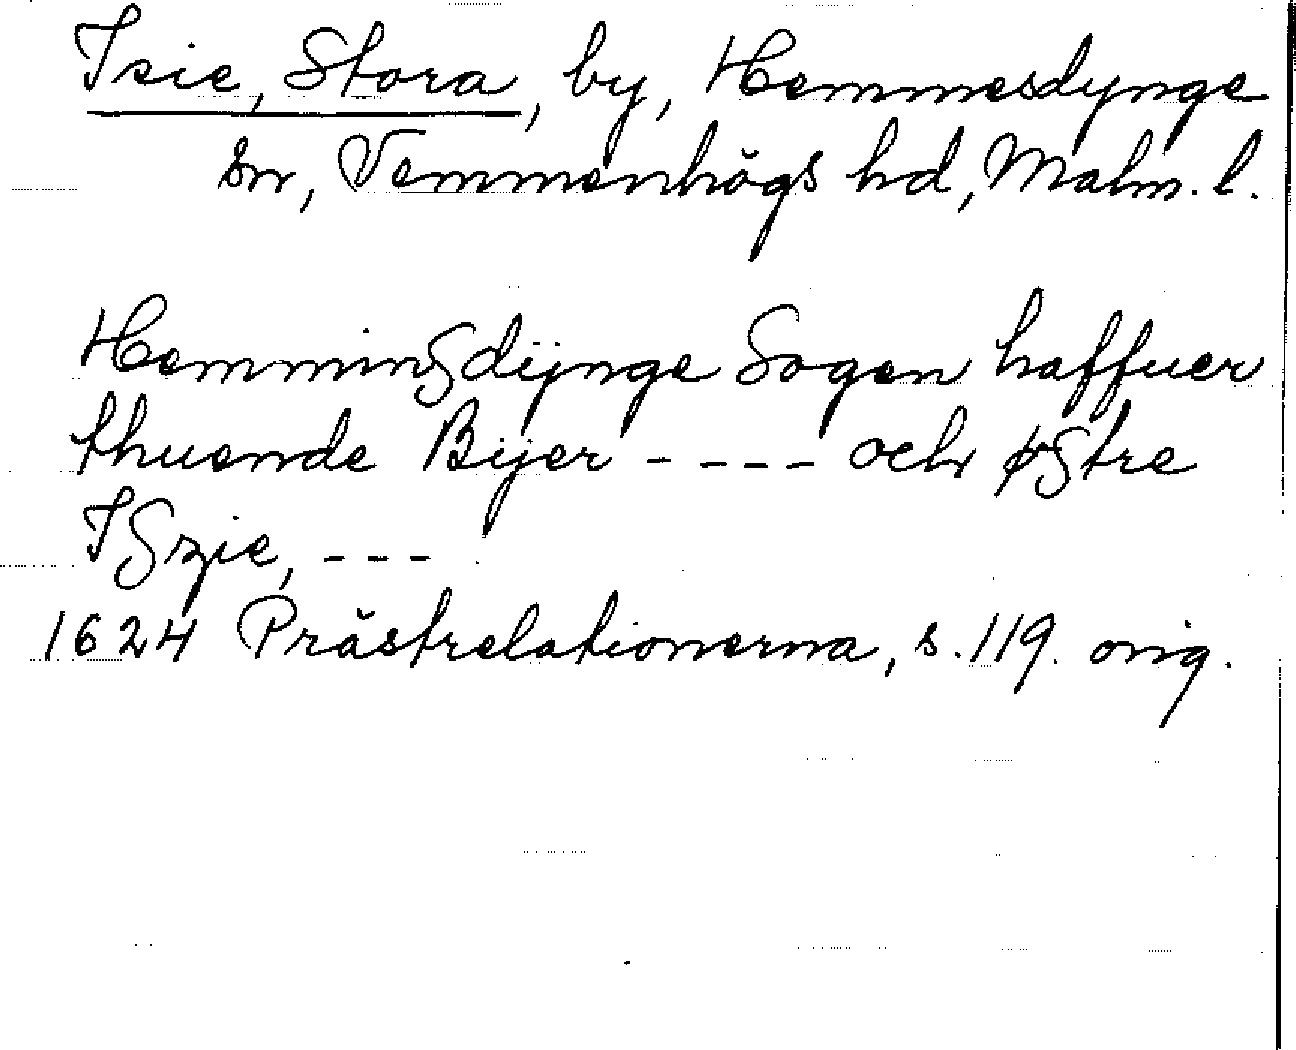 Isie, Stora, by, Hemmesdynge
sn, Vemmenhögs hd, Malm. l.
Hemmingßdÿnge Sogen haffuer
thuende Bÿer - - - - och øßtre
Ißzie, - - -
1624 Prästrelationerna, s. 119. orig.